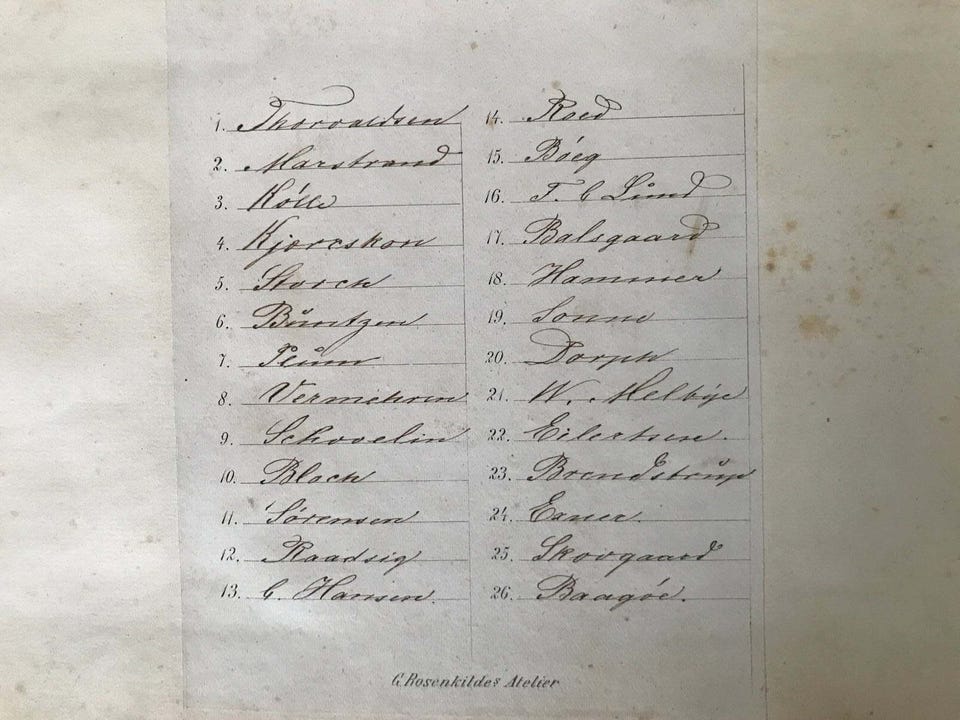 1. Thorvaldsen
2. Marstrand
3. Kölle
4. Kjærskou
5. Storch
6. Büntzen
7. Plum
8. Vermehren
9. Schovelin
10. Bloch
11. Sørensen
12. Raadsig
13. C. Hansen.
14. Roed
15. Böeg
16. F. C Lund
17. Balsgaard
18. Hammer
19. Sonne
20. Dorph
21. W. Melbÿe
22. Eilertsen.
23. Brendstrup
24. Exner.
25. Skovgaard
26. Baagöe.
G. Rosenkildes Atelier